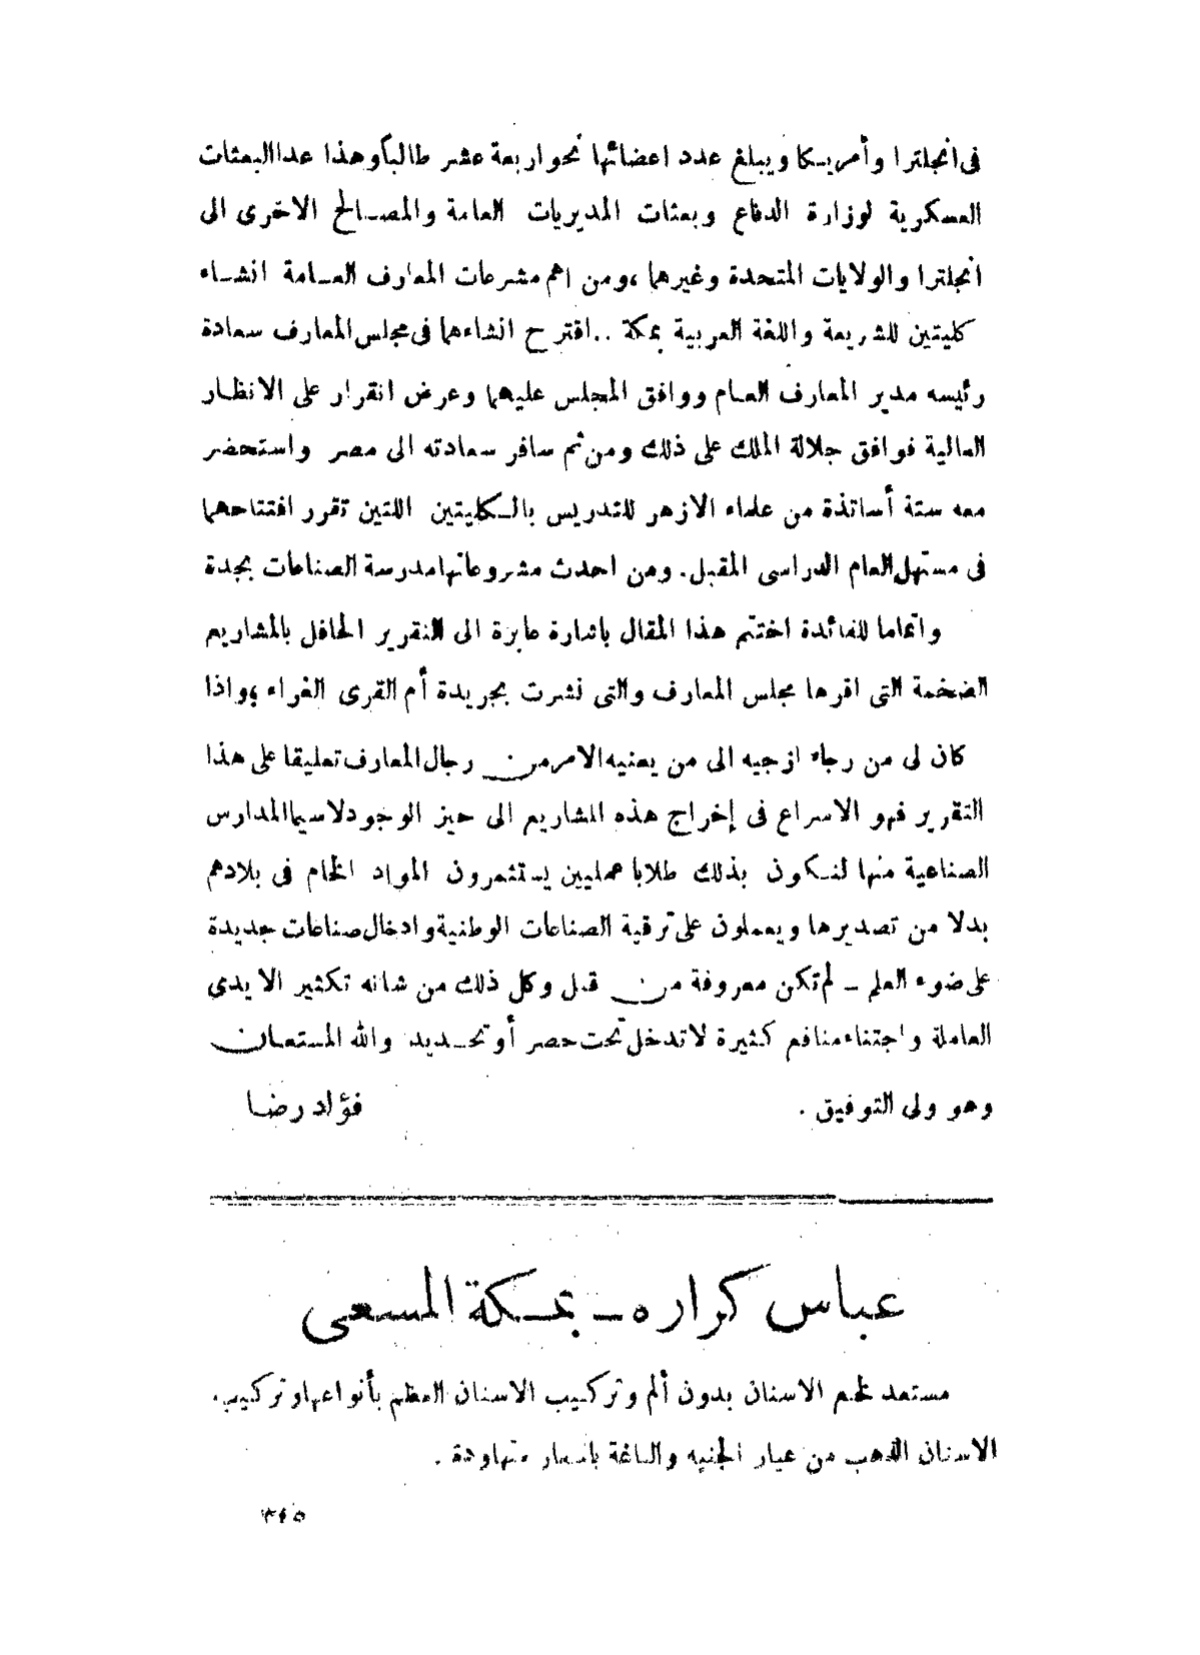 فى انجلترا وأمريكا ويبلغ عدد اعضائها نحو اربعة عشر طالباً وهذا عدا البعثات
العسكرية لوزارة الدفاع وبعثات المديريات العامة والمصالح الاخرى الى
انجلترا والولايات المتحدة وغيرهما ،ومن اهم مشرعات المعارف العامة انشاء
كليتين للشريعة واللغة العربية بمكة ..اقترح انشاءهما فى مجلس المعارف سعادة
رئيسه مدير المعارف العام ووافق المجلس عليهما وعرض القرار على الانظار
العالية فوافق جلالة الملك على ذلك ومن ثم سافر سعادته الى مصر واستحضر
معه ستة أساتذة من علماء الازهر للتدريس بالكليتين اللتين تقرر افتتاحهما
فى مستهل العام الدراسى المقبل. ومن احدث مشروعاتها مدرسة الصناعات بجدة
واتماما للفائدة اختتم هذا المقال باشارة عابرة الى التقرير الحافل بالمشاريع
الضخمة التى اقرها مجلس المعارف والتى نشرت بجريدة أم القرى الغراء ،واذا
كان لى من رجاء ازجيه الى من يعنيه الامر من رجال المعارف تعليقا على هذا
التقرير فهو الاسراع فى إخراج هذه المشاريع الى حيز الوجود لاسيما المدارس
الصناعية منها لنكون بذلك طلابا عمليين يستثمرون المواد الخام فى بلادهم
بدلا من تصديرها ويعملون على ترقية الصناعات الوطنية وادخال صناعات جديدة
على ضوء العلم – لم تكن معروفة من قبل وكل ذلك من شانه تكثير الايدى
العاملة واجتناء منافع كثيرة لاتدخل تحت حصر أو تحديد والله المستعان
وهو ولى التوفيق . فؤاد رضا
عباس كراره – بمكة المسعى
مستعد لخلع الاسنان بدون ألم وتركيب الاسنان العظم بأنواعها وتركيب
الاسنان الذهب من عيار الجنيه والباغة باسعار متهاودة .